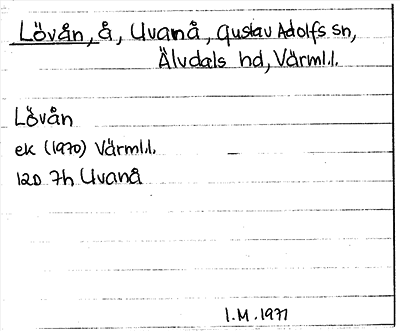 Lövån, å, Uvanå, Gustav Adolfs sn,
Älvdals hd, Värml.l.
Lövån
ek (1970) Värml.l.
12D 7h Uvanå
I.M. 1971